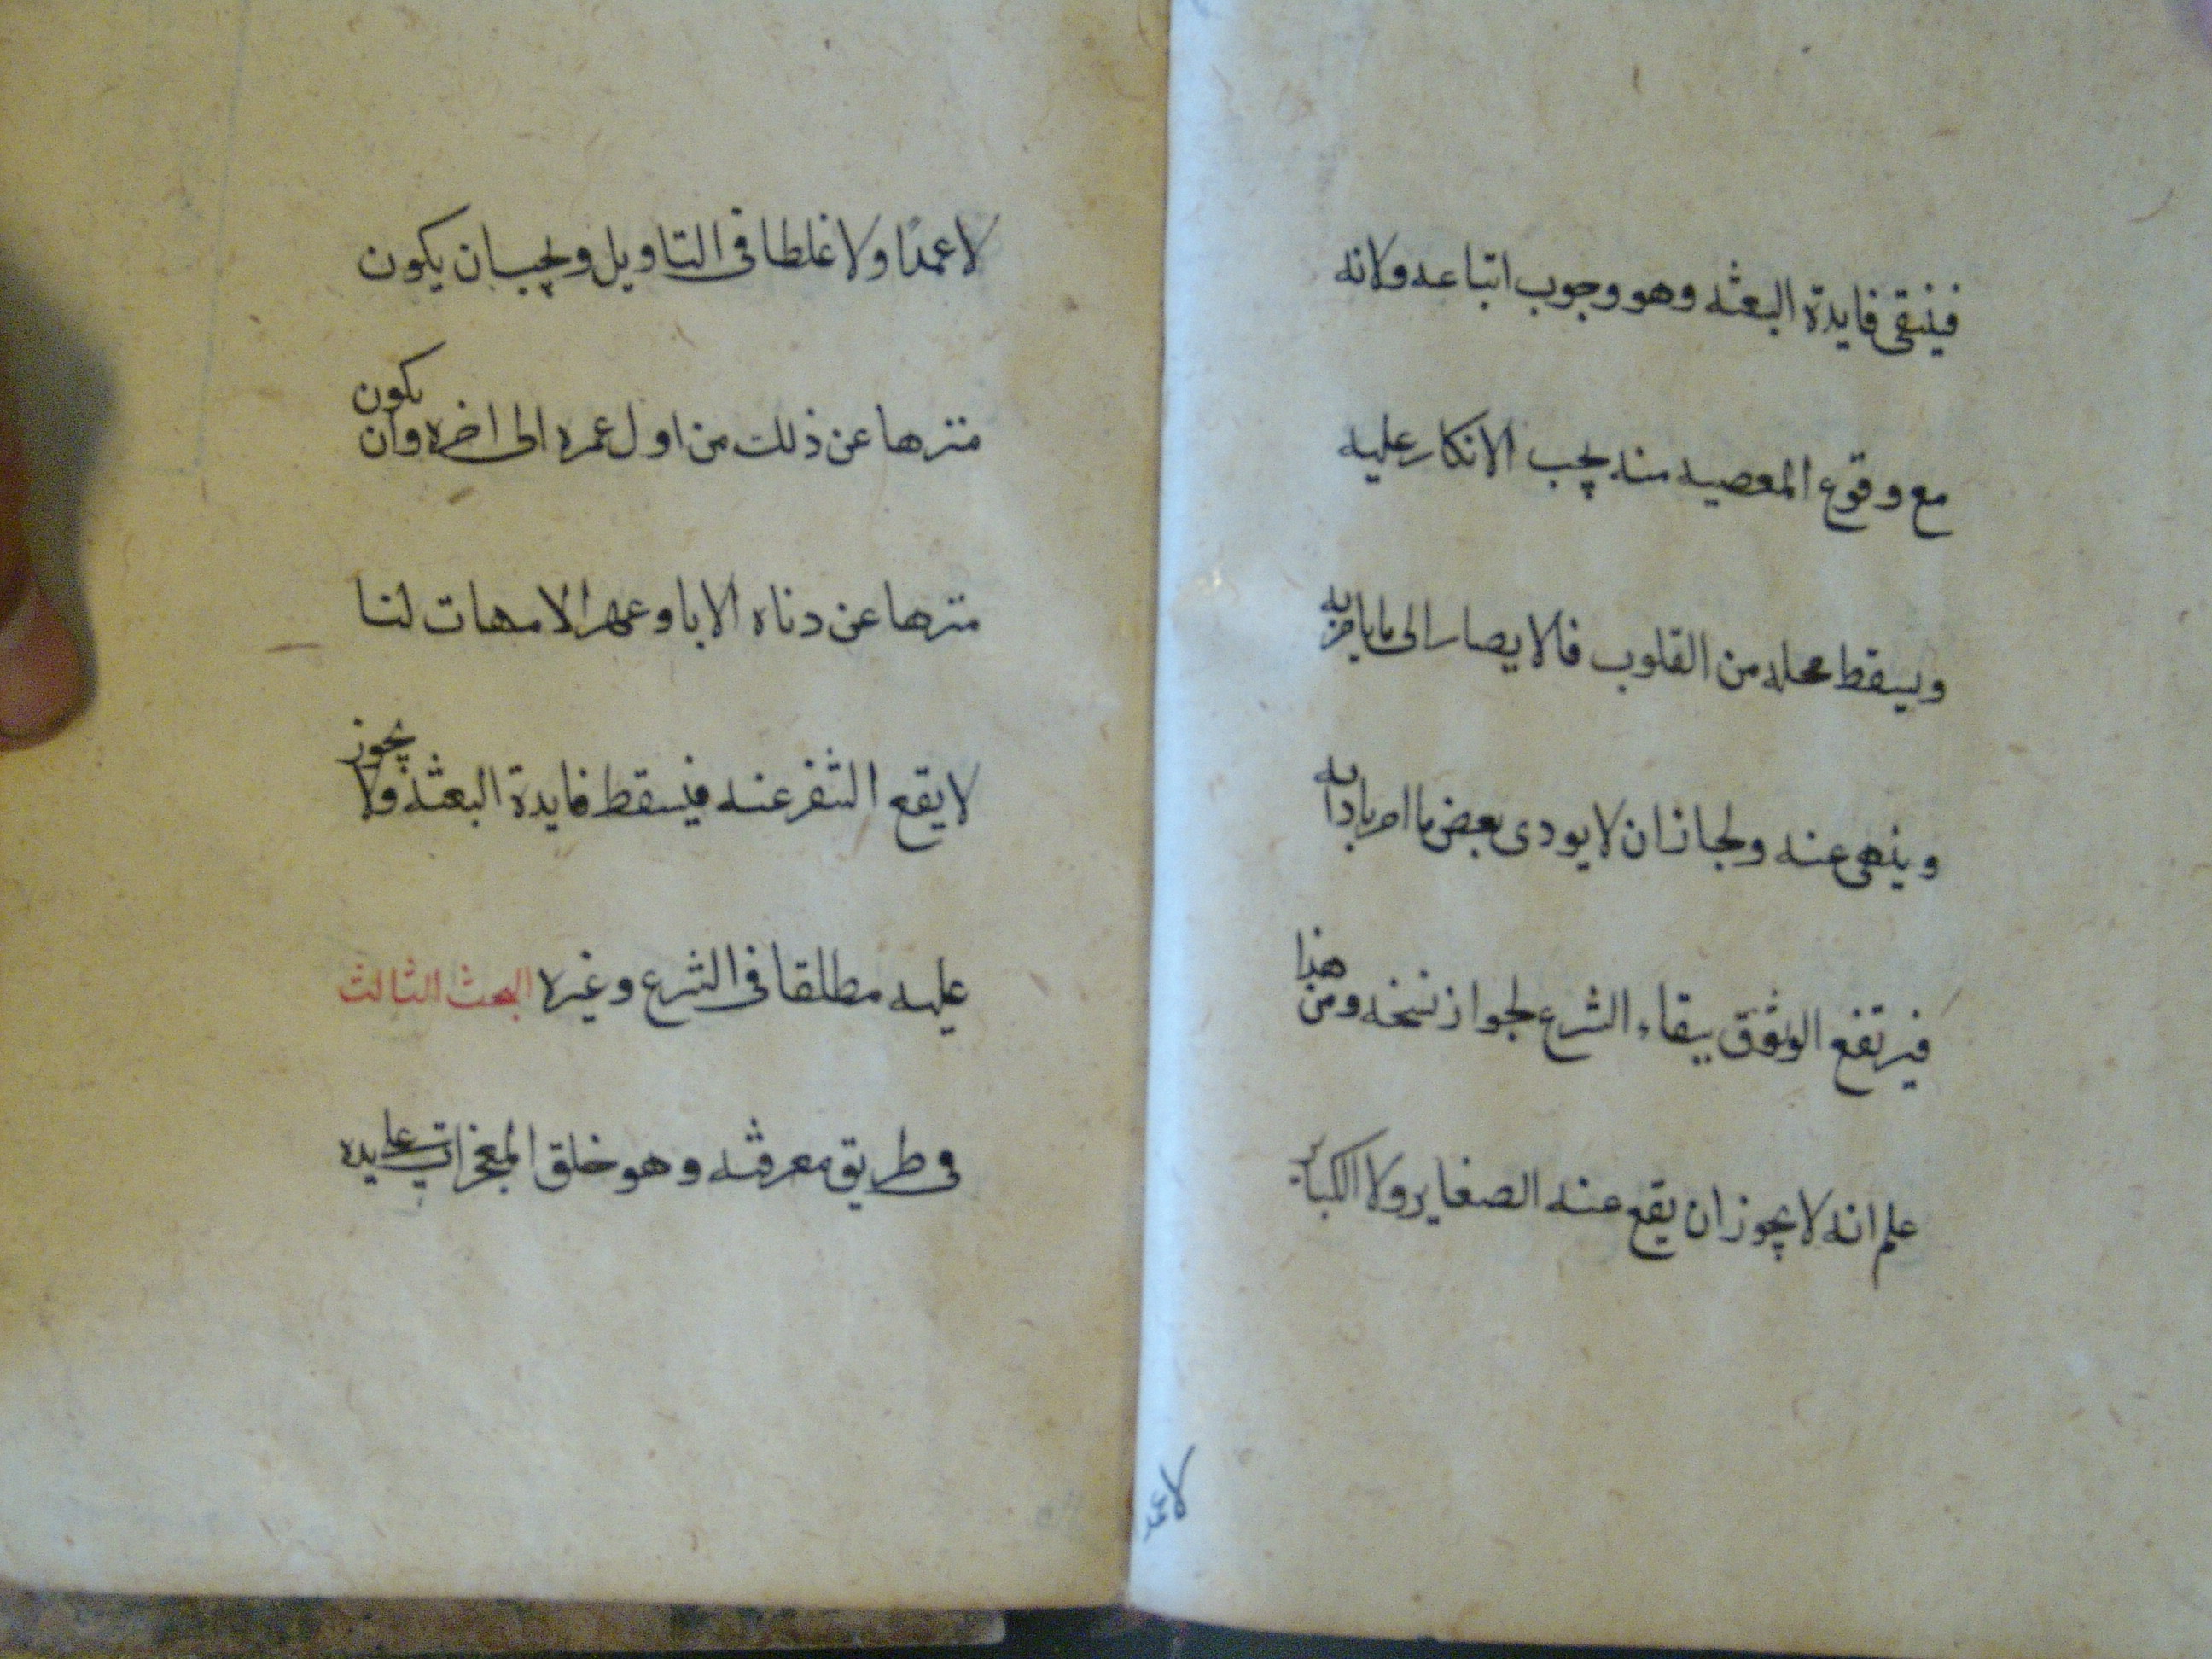 فينتفى فايدة البعثه وهو وجوب اتباعه ولانه
مع وقوع المعصيه منه يجب الانكار عليه
ويسقط محله من القلوب فلا يصار الى ما يامر به
وينهى عنه ولجاز ان لا يودى بعض ما امر بادائه
فيرتفع الوثوق ببقاء الشرع لجواز نسخه ومن هذا
علم انه لا يجوز ان يقع عنه الصغاير ولا الكبائر
لا عمدا
لا عمدًا ولا غلطا فى التاويل ويجب ان يكون
منزها عن ذلك من اول عمره الى اخره وان يكون
منزها عن دناه الابا وعهر الامهات لئلا
لا يقع التنفر عنه فيسقط فايدة البعثه ولا يجوز
عليه مطلقا فى الشرع وغيره البحث الثالث
فى طريق معرفته وهو خلق المعجزات على يده